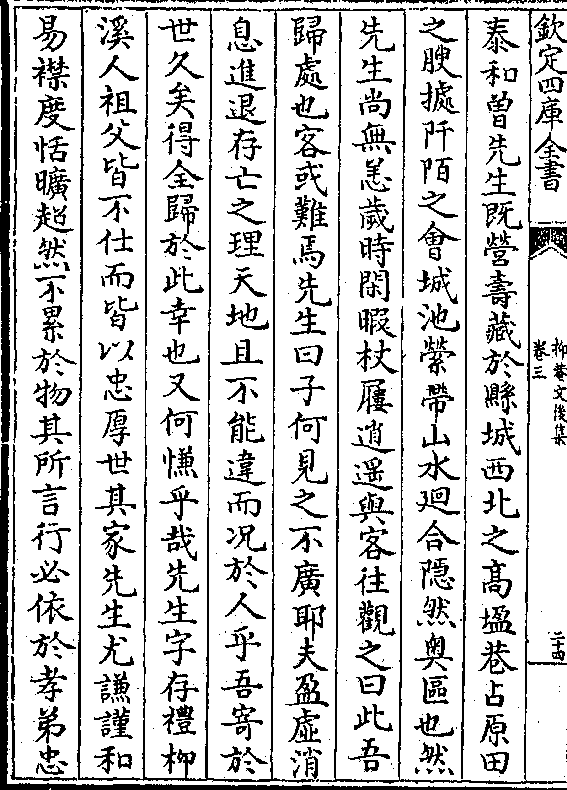 欽定四庫全書
抑菴文後集
卷三
二十四
泰和曽先生既營壽藏於縣城西北之髙𭏟巷占原田
之腴㩀阡陌之會城池縈帶山水廻合隠然奥區也然
先生尚無恙歲時閑暇杖屨逍遥與客往觀之曰此吾
歸處也客或難焉先生曰子何見之不廣耶夫盈虛消
息進退存亡之理天地且不能違而况於人乎吾寄於
世久矣得全歸於此幸也又何慊乎哉先生字存禮栁
溪人祖父皆不仕而皆以忠厚世其家先生尤謙謹和
易襟度恬曠超然不累於物其所言行必依於孝弟忠